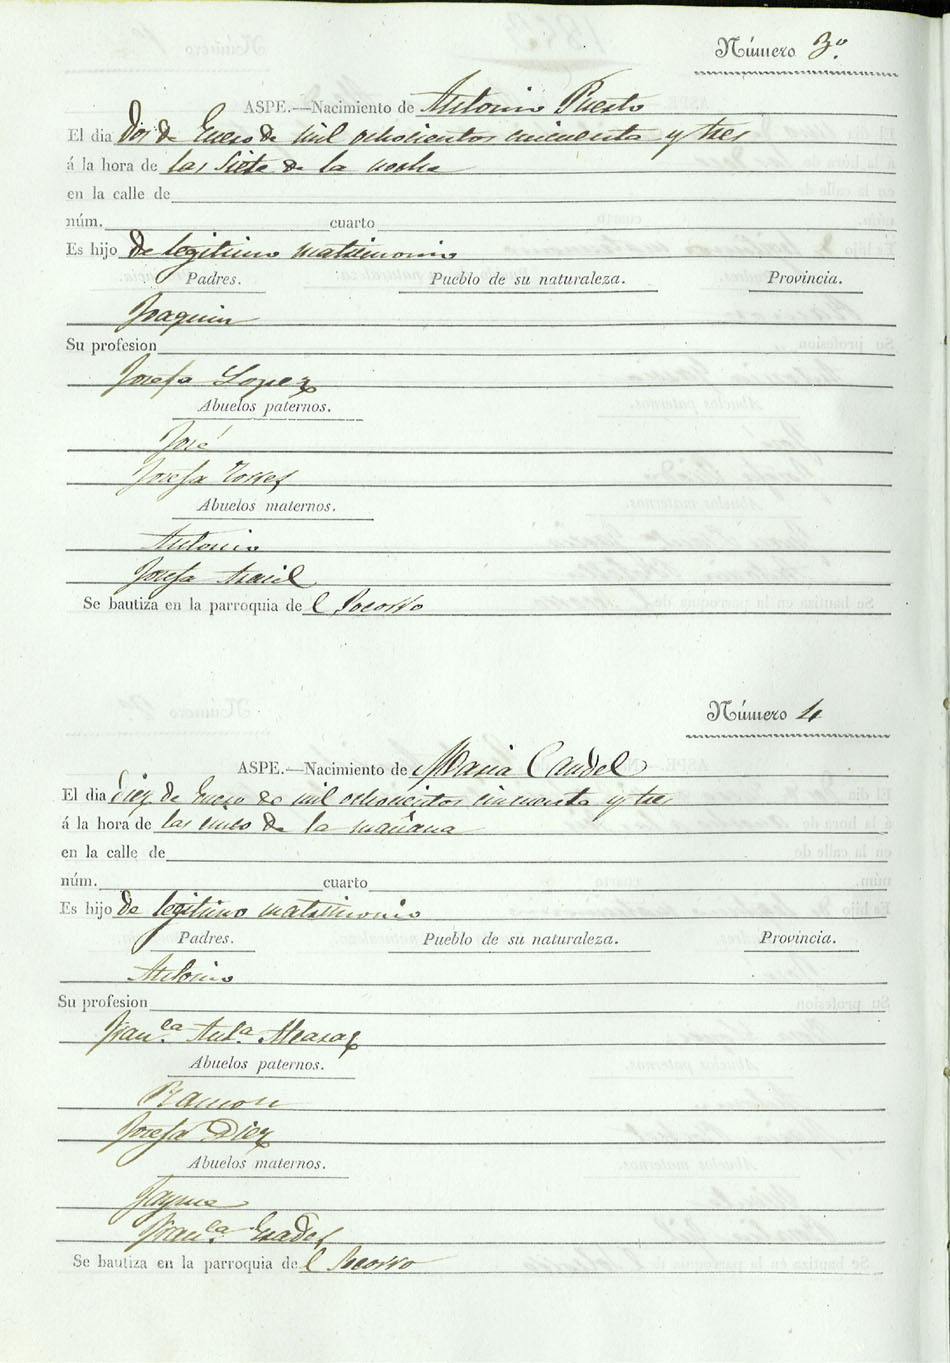 Número 3º
ASPE.—Nacimiento de Antonio Puerto
El dia dos de Enero de mil ochocientos cincuenta y tres
á la hora de las siete de la noche
en la calle de
núm. cuarto
Es hijo de legitimo matrimonio
Padres. Pueblo de su naturaleza. Provincia.
Joaquin
Su profesion
Josefa Lopez
Abuelos paternos.
José
Josefa Torres
Abuelos maternos.
Antonio
Josefa
Se bautiza en la parroquia de l Socorro
Número 4
ASPE.—Nacimiento de Maria Candel
El dia diez de Enero de mil ochocientos cincuenta y tres
á la hora de las cinco de la mañana
en la calle de
núm. cuarto
Es hijo de legitimo matrimonio
Padres. Pueblo de su naturaleza. Provincia.
Antonio
Su profesion
Fran.ca Ant.a Alcaraz
Abuelos paternos.
Ramon
Josefa Diez
Abuelos maternos.
Jayme
Fran.ca
Se bautiza en la parroquia de l Socorro